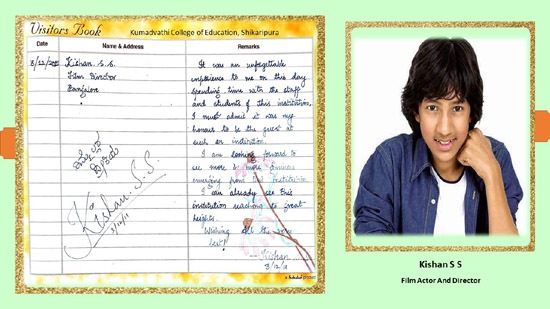 Visitors Book
Kumadvathi College of Education, Shikaripura
Date
Name & Address
Remarks
Kishan S.S.
Film Director
Bangalore
It was an unforgettable
experience to me on this day
spending time with the staff
and students of this institution.
I must admit it was my
honour to be the guest at
such an institution.
I am looking forward to
see more & more
emerging from this institution
I can already see this
institution reaching to great
heights.
Wishing all the very
best!
Kishan
Kishan S.S.
Kishan S S
Film Actor And Director